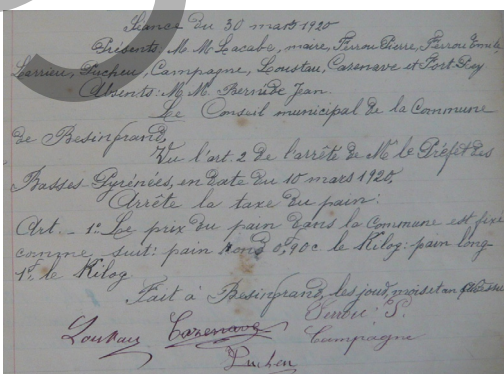 Séance du 30 mars 1920
Présents, M. M. Lacabe, maire, Perrou Pierre, Perrou Emile,
Larrieu, Pucheu, Campagne, Loustau, Cazenave et Fort-Dey
Absents: M. M. Bernide Jean.
Le Conseil municipal de la Commune
de Besingrand,
Vu l'art. 2 de l'arrêté de Mr le Préfet des
Basses-Pyrénées, en date du 10 mars 1920,
Arrête la taxe du pain:
Art. - 1º Le prix du pain dans la Commune est fixé
comme suit: pain rond 0,90c le Kilog: pain long
1f, le Kilog
Fait à Besingrand, les jour, mois et an
Loustau Cazenave Perrou P.
Campagne
Pucheu